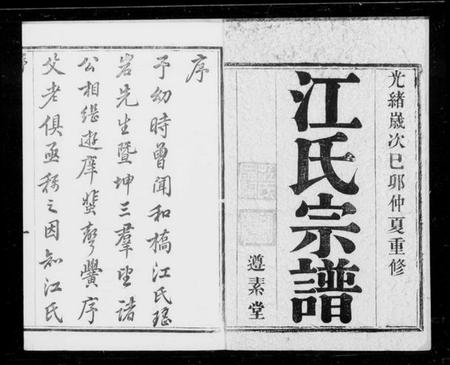 光緒歲次己卯仲夏重修
江氏宗譜
遵素堂
序
予幼時曾聞和橋江氏瑤
岩先生暨坤三羣望諸
公相繼遊庠蜚聲黌序
父老俱亟稱之因知江氏